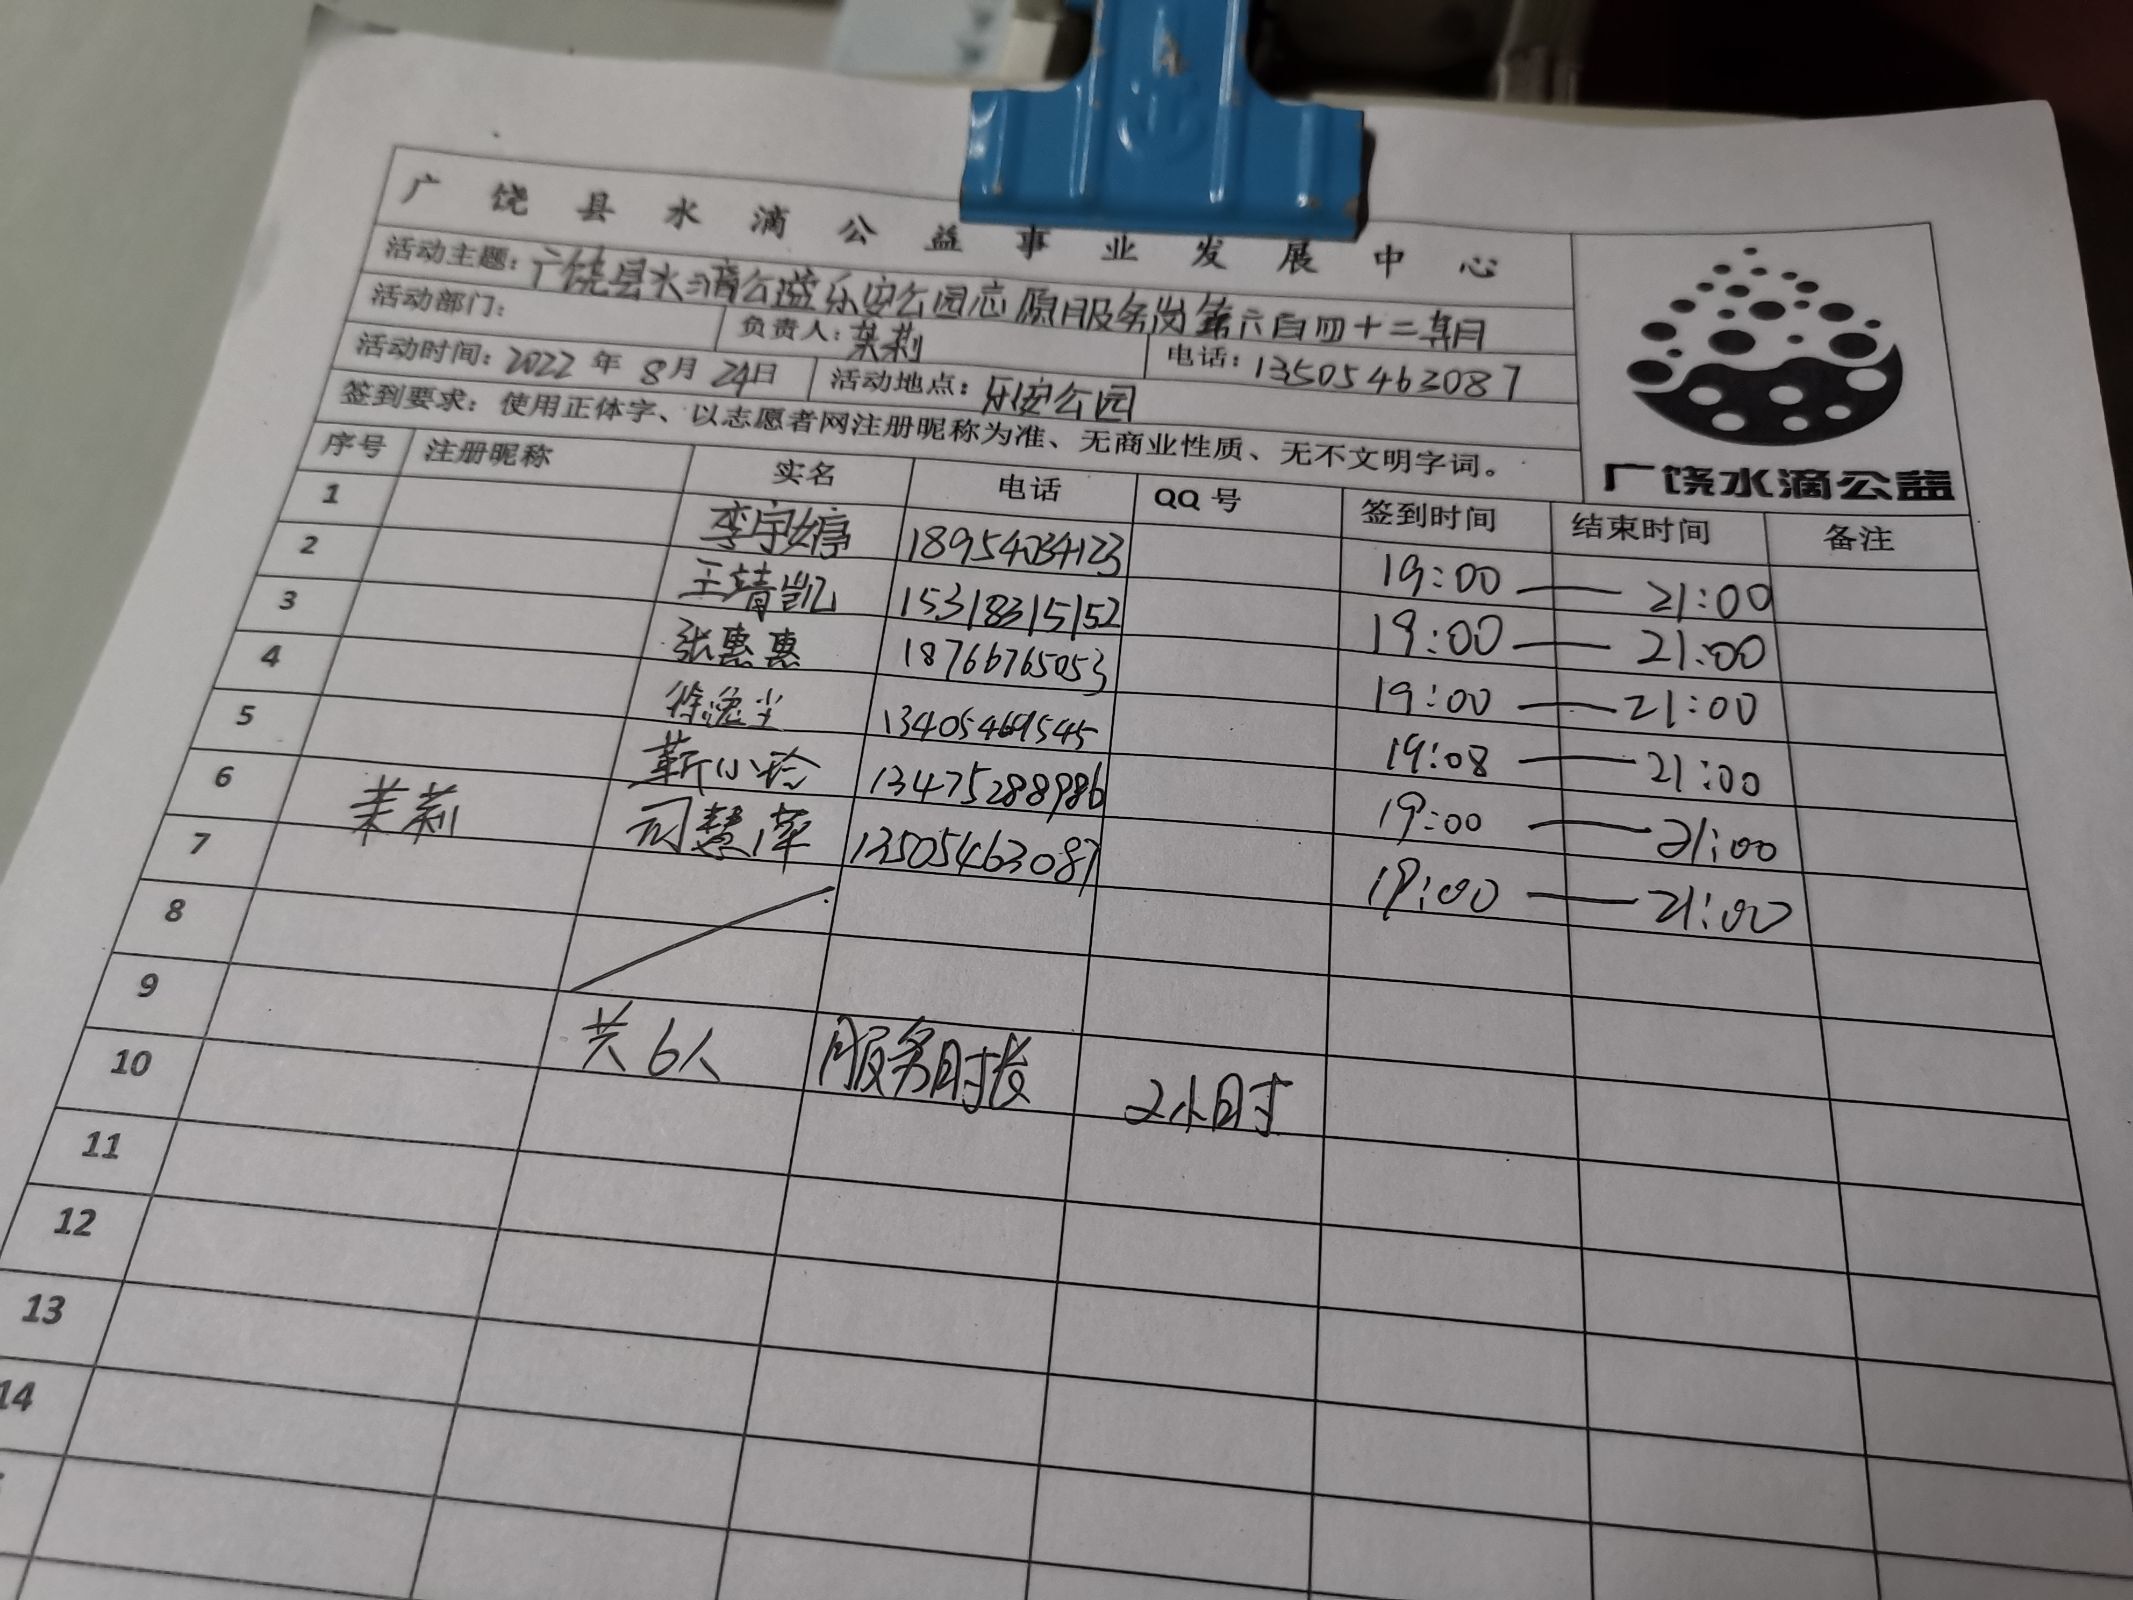 广饶县水滴公益事业发展中心
活动主题：广饶县水滴公益乐安公园志愿服务岗第六百四十二期
活动部门： 负责人：茉莉 电话：13505463087
活动时间：2022年8月24日 活动地点：乐安公园
签到要求：使用正体字、以志愿者网注册昵称为准、无商业性质、无不文明字词。
广饶水滴公益
序号 注册昵称 实名 电话 QQ号 签到时间 结束时间 备注
1 李宇婷 18954034123 19:00 — 21:00
2 王靖凯 15318315152 19:00 — 21:00
3 张惠惠 18766765053 19:00 — 21:00
4 13405469545 19:08 — 21:00
5 靳小玲 13475288986 19:00 — 21:00
6 茉莉 司慧萍 13505463087 19:00 — 21:00
7
8
9 共6人 服务时长 2小时
10
11
12
13
14